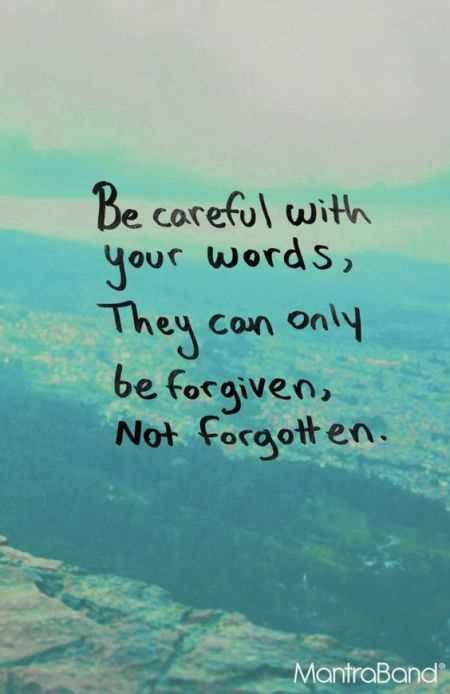 Be careful with
your words,
They can only
be forgiven,
Not forgotten.
MantraBand®